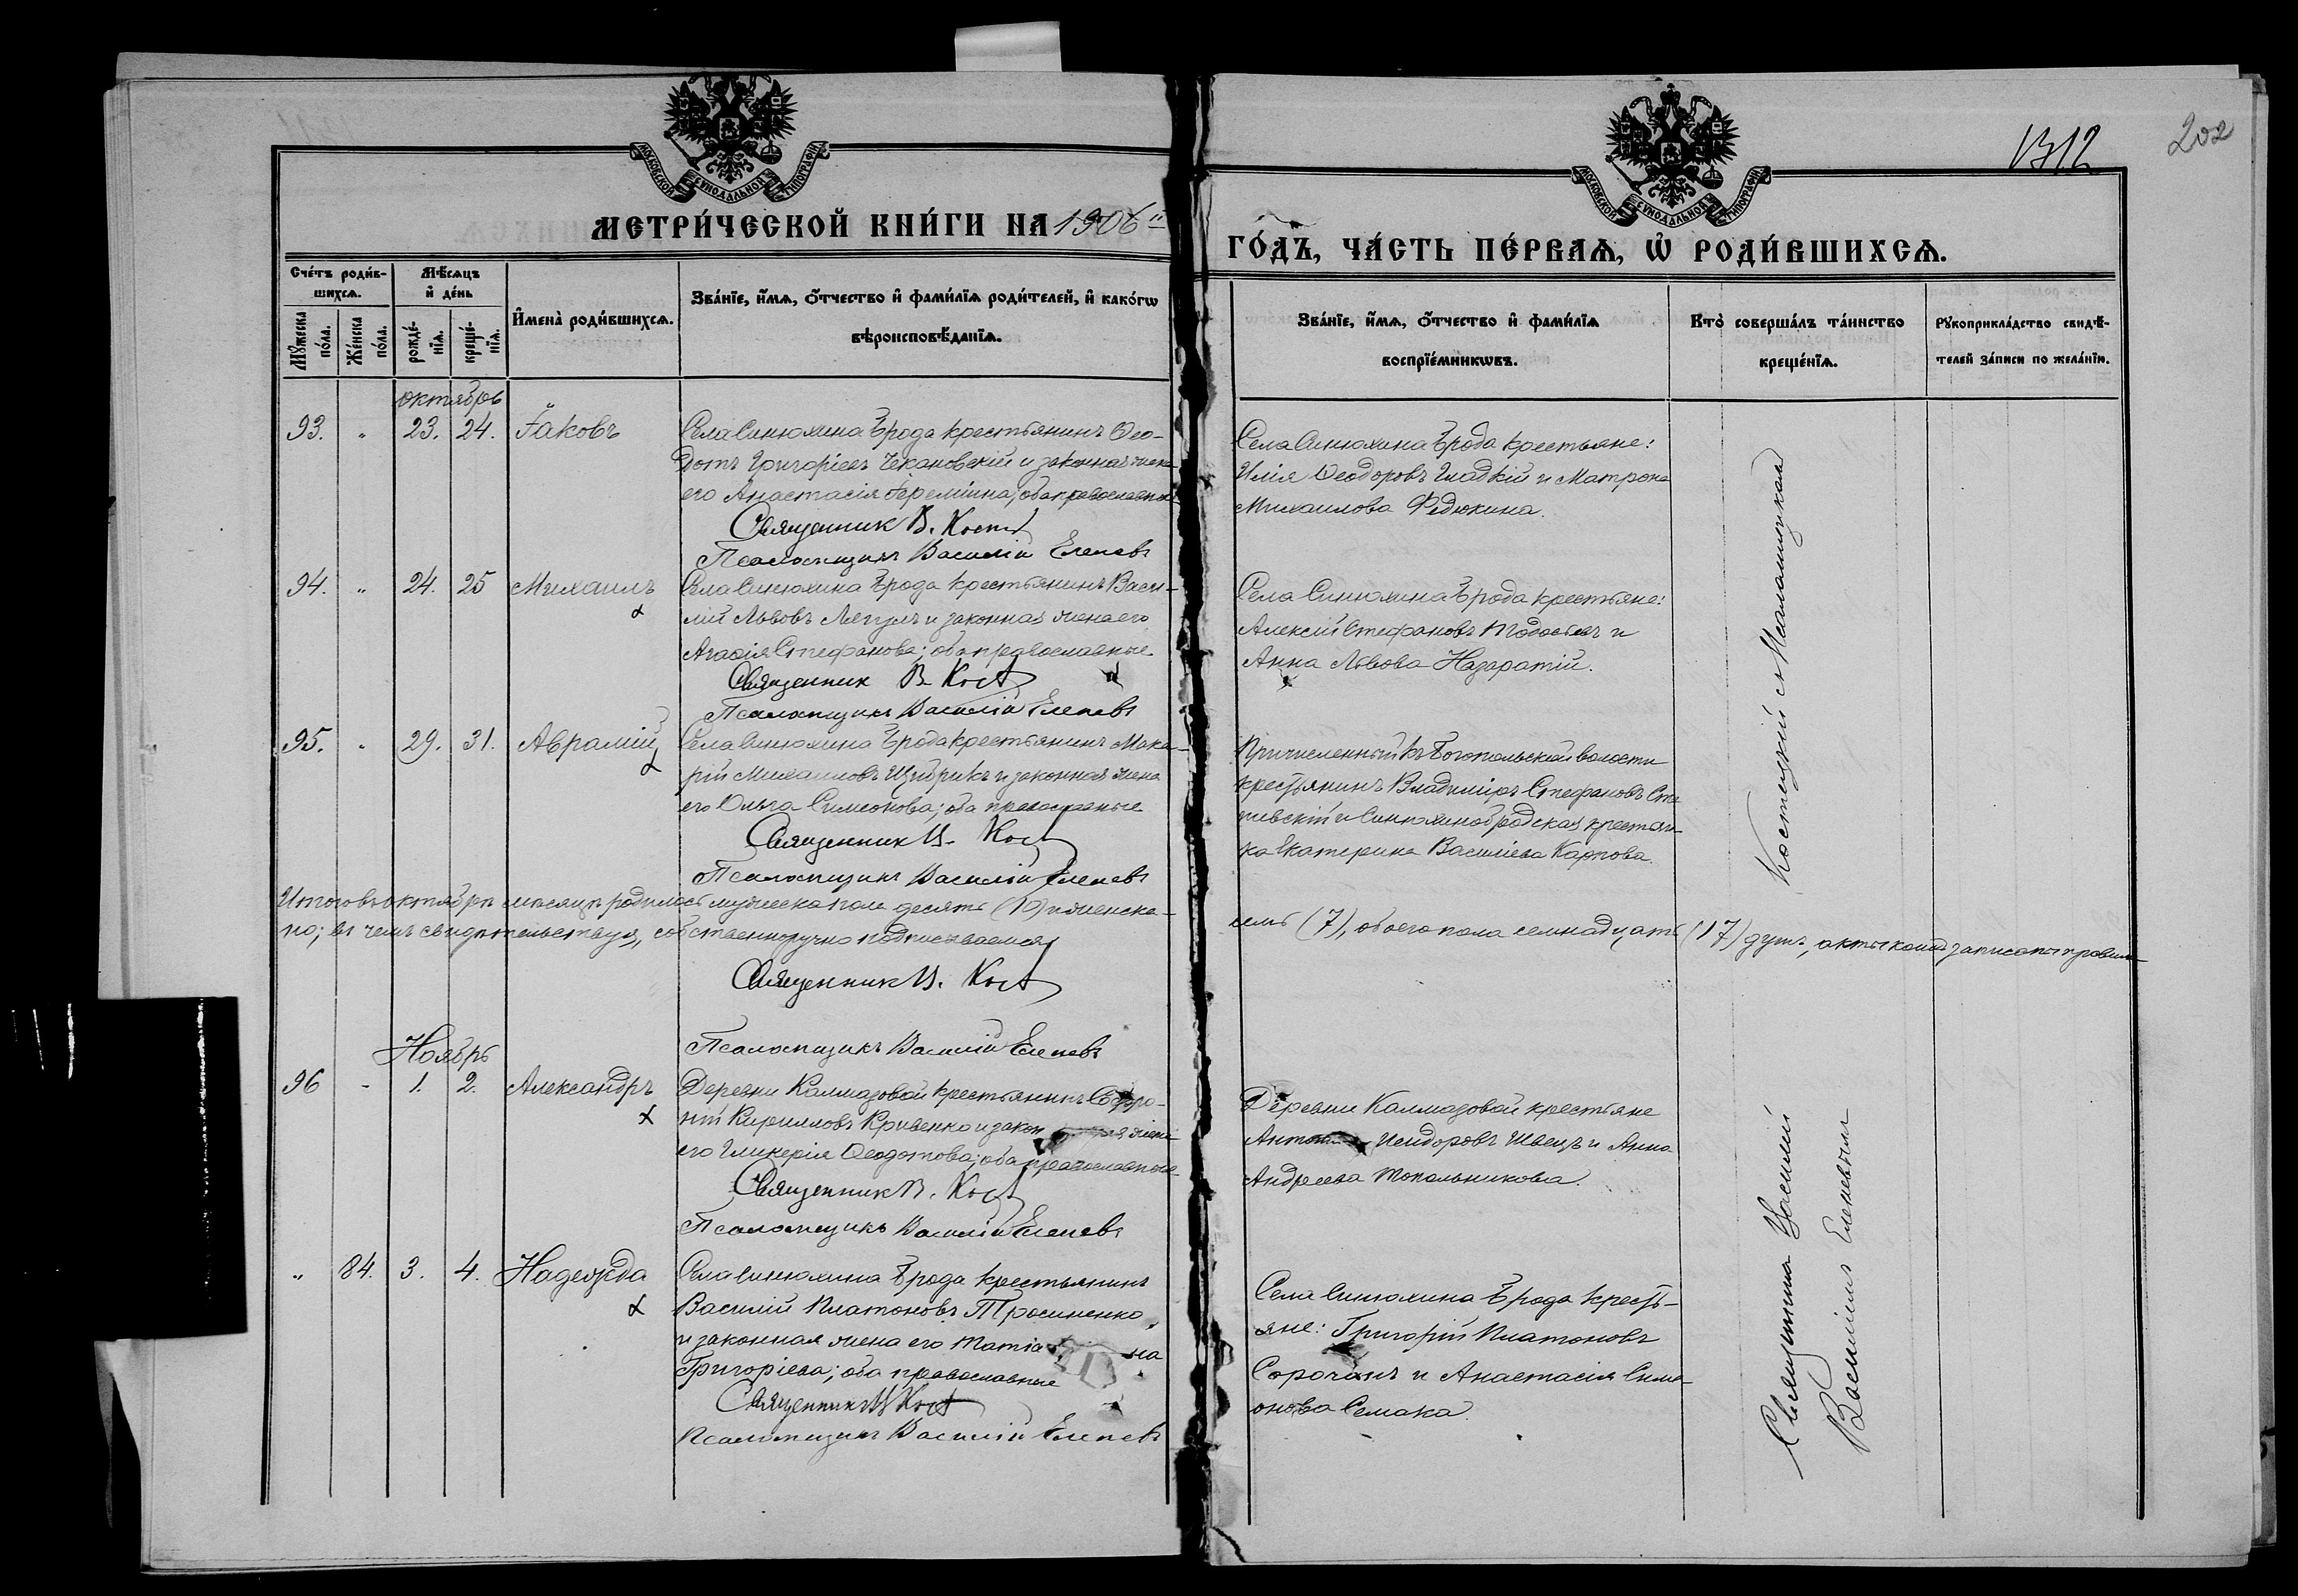 202
1312
МОСКОВСКОЙ СѴНОДАЛЬНОЙ ТИПОГРАФІИ
МОСКОВСКОЙ СѴНОДАЛЬНОЙ ТИПОГРАФІИ
МЕТРИ́ЧЕСКОЙ КНИ́ГИ НА 1906й
ГО́ДЪ, ЧА́СТЬ ПЕ́РВАѦ, Ѡ҆ РОДИ́ВШИХСѦ.
Сче́тъ роди́в-
шихсѧ.
Мꙋ́жеска
по́ла.
Же́нска
по́ла.
Мѣ́сѧцъ
и҆ де́нь
рожде́-
нїѧ.
креще́-
нїѧ.
И҆мена̀ роди́вшихсѧ.
Зва́нїе, и҆́мѧ, ѻ҆́тчество и҆ фами́лїѧ роди́телей, и҆ како́гѡ
вѣроисповѣ́данїѧ.
Зва́нїе, и҆́мѧ, ѻ҆́тчество и҆ фами́лїѧ
воспрїе́мникѡвъ.
Кто̀ соверша́лъ та́инство
креще́нїѧ.
Рꙋкоприкла́дство свидѣ́-
телей за́писи по жела́нїю.
октябрь
93. " 23. 24. Іаковъ
Села Синюхина Брода крестьянинъ Ѳео-
дотъ Григоріевъ Чекановскій и законная жена
его Анастасія Іереміина; оба православные
Священник В. Кост
Псаломщикъ Василій Еленевъ
Села Синюхина Брода крестьяне:
Илія Ѳеодоровъ Гладкій и Матрона
Михаилова Федюкина.
94. " 24. 25 Михаилъ
Села Синюхина Брода крестьянинъ Васи-
лій Львовъ и законная жена его
Агафія Стефанова; оба православные
Священник В. Кост
Псаломщикъ Василій Еленевъ
Села Синюхина Брода крестьяне:
Алексій Стефановъ и
Анна Львова Назаратій.
95. " 29. 31. Аврамій
Села Синюхина Брода крестьянинъ Мака-
рій Михаиловъ Щибрикъ и законная жена
его Ольга Симеонова; оба православные
Священник В. Кост
Псаломщикъ Василій Еленевъ
Причисленный къ Богопольской волости
крестьянинъ Владиміръ Стефановъ
и Синюхинобродская крестьян-
ка Екатерина Василіева Карпова.
Итого въ октябрѣ мѣсяцѣ родилось мужеска пола десять (10) и женска-
семь (7), обоего пола семнадцать (17) душъ, акты коихъ записаны правиль-
но; въ чемъ свидѣтельствуя, собственноручно подписываемся
Священник В. Кост
Псаломщикъ Василій Еленевъ
Ноябрь
96 - 1. 2. Александръ
Деревни Калмазовой крестьянинъ Софро-
ній Кирилловъ Кривенко и законная жена
его Гликерія Ѳеодотова; оба православные
Священник В. Кост
Псаломщикъ Василій Еленевъ
Деревни Калмазовой крестьяне
Исидоровъ Швецъ и Анна
Андреева Топольникова.
" 84. 3. 4. Надежда
Села Синюхина Брода крестьянинъ
Василій Платоновъ Тросиненко
и законная жена его Татіана
Григоріева; оба православные
Священник В Кост
Псаломщикъ Василій Еленевъ
Села Синюхина Брода кресть-
яне: Григорій Платоновъ
Сорочанъ и Анастасія Симе-
онова Семака.
Священникъ Василій Костецкій съ псаломщикомъ
Василіемъ Еленевымъ